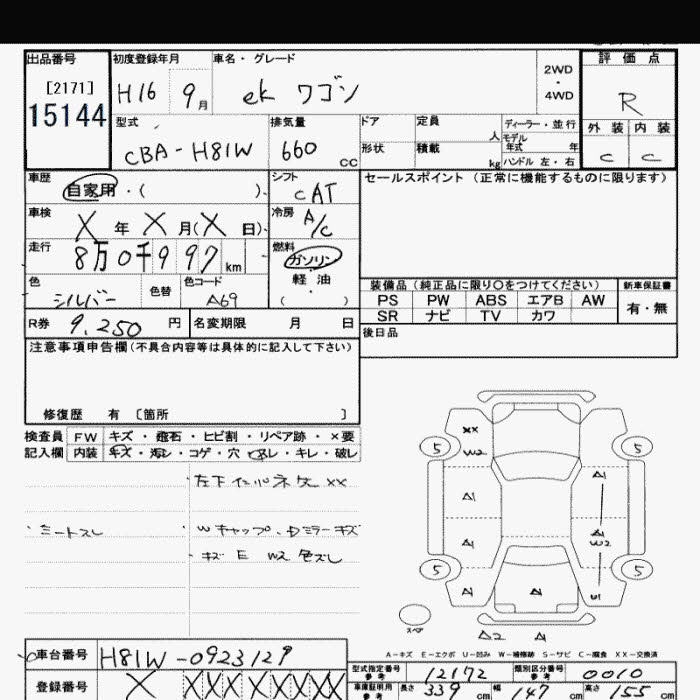 出品番号 初度登録年月 車名・グレード 評価点
[2171] H16 9月 ek ワゴン 2WD・4WD R
15144
型式 排気量 ドア 定員 人 ディーラー・並行 外装 内装
CBA-H81W 660 cc 形状 積載 kg モデル年式 年 ハンドル 左・右 C C
車歴 自家用・( ) シフト CAT セールスポイント(正常に機能するものに限ります)
車検 X 年 X 月(X 日) 冷房 A/C
走行 8万0千997km 燃料 ガソリン
軽油
( )
色 シルバー 色替 色コード A69
装備品(純正品に限り○をつけてください) 新車保証書
PS PW ABS エアB AW 有・無
SR ナビ TV カワ
R券 9,250 円 名変期限 月 日 後日品
注意事項申告欄(不具合内容等は具体的に記入して下さい)
修復歴 有 〔箇所 〕
検査員 FW キズ・飛石・ヒビ割・リペア跡・×要
記入欄 内装 キズ・汚レ・コゲ・穴・スレ・キレ・破レ
XX
W2
5 5
A1 A1
A1 A1
W2
5 5
A1 A1 U1
スペア
A2 A1
・シートスレ
・Wキャップ、Dミラーキズ
キズ E W2 色ズレ
A-キズ E-エクボ U-凹み W-補修跡 S-サビ C-腐食 XX-交換済
車台番号 H81W-0923129
登録番号 X XXXXXXXX
型式指定番号 参考 12172 類別区分番号 参考 0010
車庫証明用 参考 長さ 339 cm 幅 147 cm 高さ 155 cm